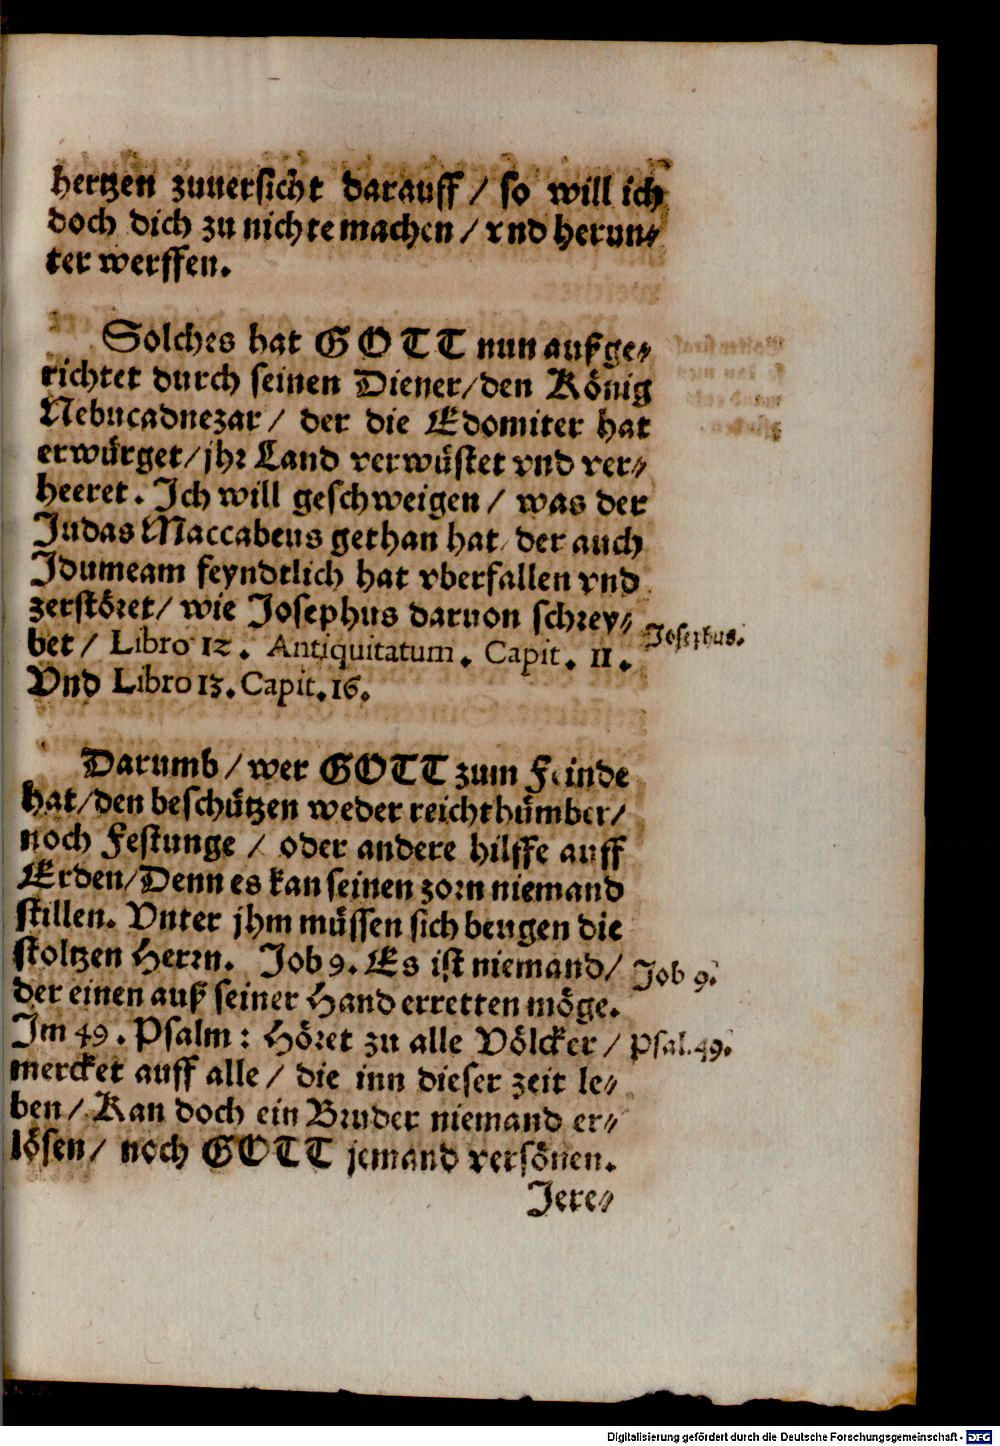 hertzen zuuersicht darauff / so will ich
doch dich zu nichte machen / vnd herun⸗
ter werffen.
Solches hat GOTT nun außge⸗
richtet durch seinen Diener/den König
Nebucadnezar / der die Edomiter hat
erwürget/jhr Land verwüstet vnd ver⸗
heeret. Ich will geschweigen / was der
Judas Maccabeus gethan hat/der auch
Idumeam feyndtlich hat vberfallen vnd
zerstöret/ wie Josephus daruon schrey⸗
Josephus.
bet / Libro 12. Antiquitatum. Capit. 11.
Vnd Libro 13. Capit. 16.
Darumb / wer GOTT zum Feinde
hat/den beschützen weder reichthümber/
noch Festunge / oder andere hilffe auff
Erden/Denn es kan seinen zorn niemand
stillen. Vnter jhm müssen sich beugen die
stoltzen Herrn. Job 9. Es ist niemand/
Job 9.
der einen auß seiner Hand erretten möge.
Im 49. Psalm: Höret zu alle Völcker /
Psal. 49.
mercket auff alle / die inn dieser zeit le⸗
ben / Kan doch ein Bruder niemand er⸗
lösen / noch GOTT jemand versönen.
Jere⸗
Digitalisierung gefördert durch die Deutsche Forschungsgemeinschaft - DFG